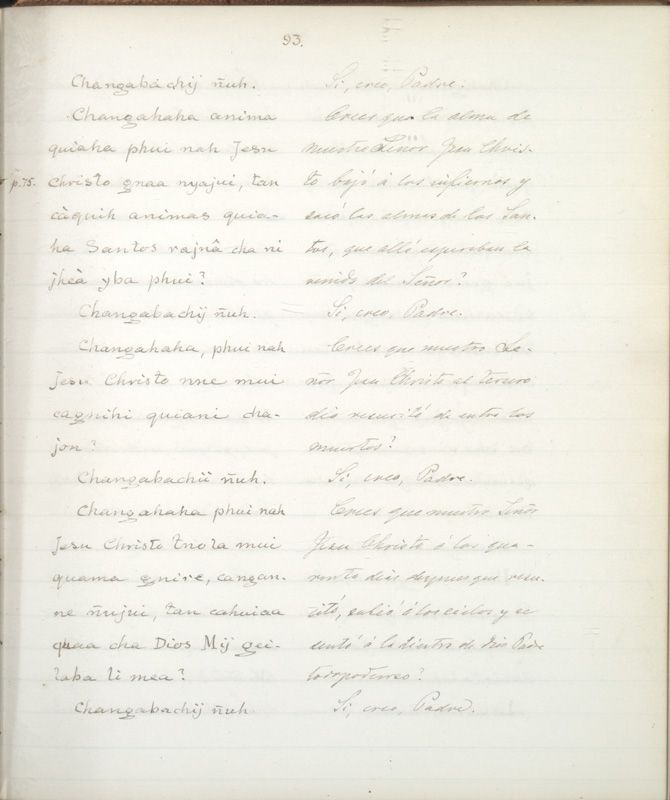 93.
Changabachij ñuh.
Changahaha anima
quiaha phui nah Jesu
p. 75.
Christo gnaa nyajui, tan
càquih animas quia-
ha Santos rajnâ cha ni
jheà yba phui?
Changabachij ñuh.
Changahaha, phui nah
Jesu Christo nne mui
cagnihi quiani cha-
jon?
Changabachij ñuh.
Changahaha phui nah
Jesu Christo tnola mui
quama gnire, cangan-
ne ñujui, tan cahuiaa
quaa cha Dios Mij gei-
laba li mea?
Changabachij ñuh
Si, creo, Padre.
Crees que la alma de
nuestro Señor Jesu Chris-
to bajó á los infiernos y
sacó las almas de los San-
tos, que allá esperaban la
venida del Señor?
Si, creo, Padre.
Crees que nuestro Se-
ñor Jesu Christo al tercero
dia resucitó de entre los
muertos?
Si, creo, Padre.
Crees que nuestro Señor
Jesu Christo á los qua-
renta dias despues que resu-
citó, subió á los cielos y se
sentó á la diestra de Dios Padre
todopoderoso?
Si, creo, Padre.